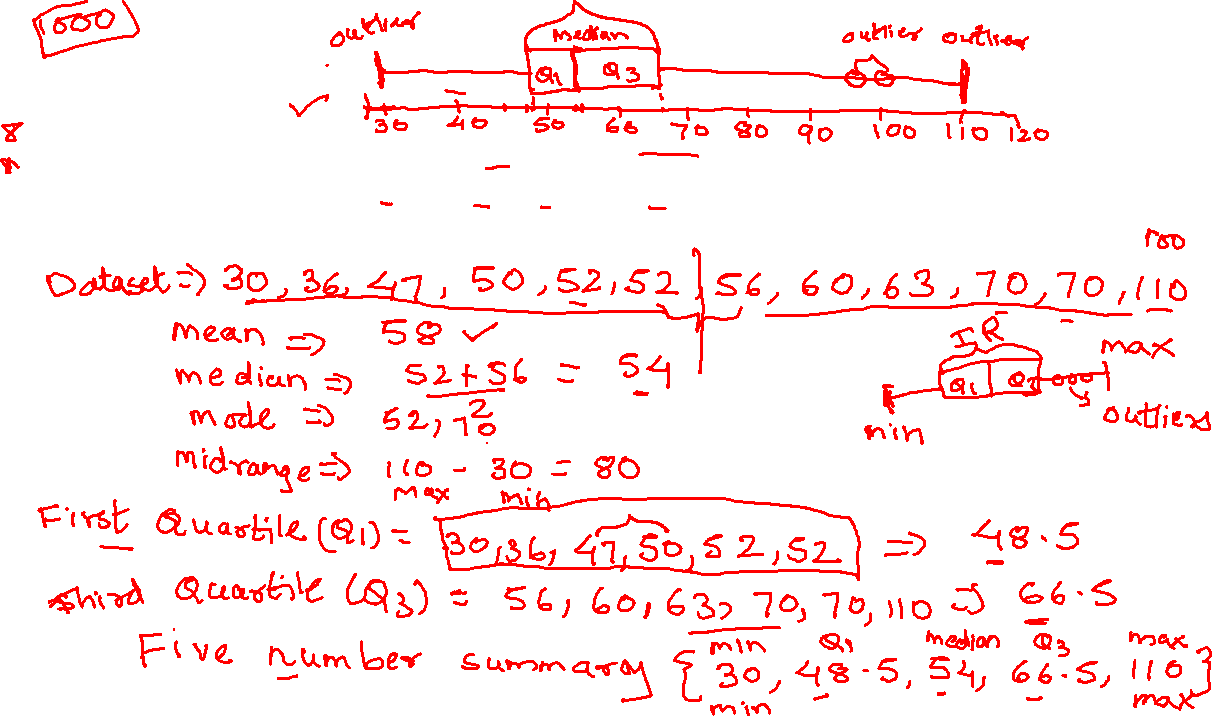 000
outlier
median
outlier outlier
Q1 Q3
30 40 50 60 70 80 90 100 110 120
8
100
Dataset => 30, 36, 47, 50, 52, 52, 56, 60, 63, 70, 70, 110
mean => 58 ✓
median => 52+56 = 54
2
mode => 52, 70
midrange => 110 - 30 = 80
max min
IR
max
Q1 Q3
min
outliers
First Quartile (Q1) = 30, 36, 47, 50, 52, 52 => 48.5
third Quartile (Q3) = 56, 60, 63, 70, 70, 110 => 66.5
min Q1 median Q3 max
Five number summary { 30, 48.5, 54, 66.5, 110 }
min max